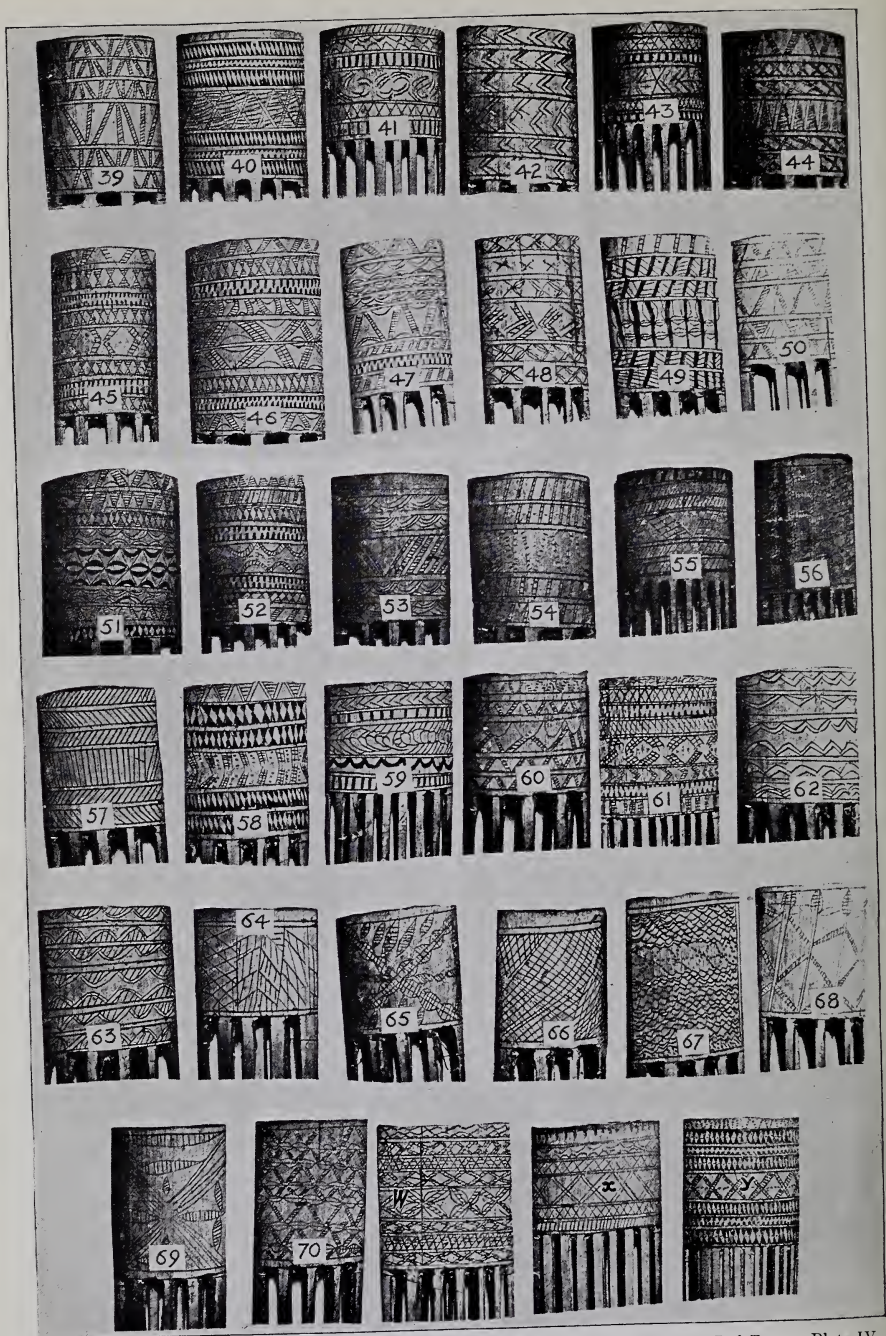 39 40 41 42 43 44
45 46 47 48 49 50
51 52 53 54 55 56
57 58 59 60 61 62
63 64 65 66 67 68
69 70 W x y
Plate IV